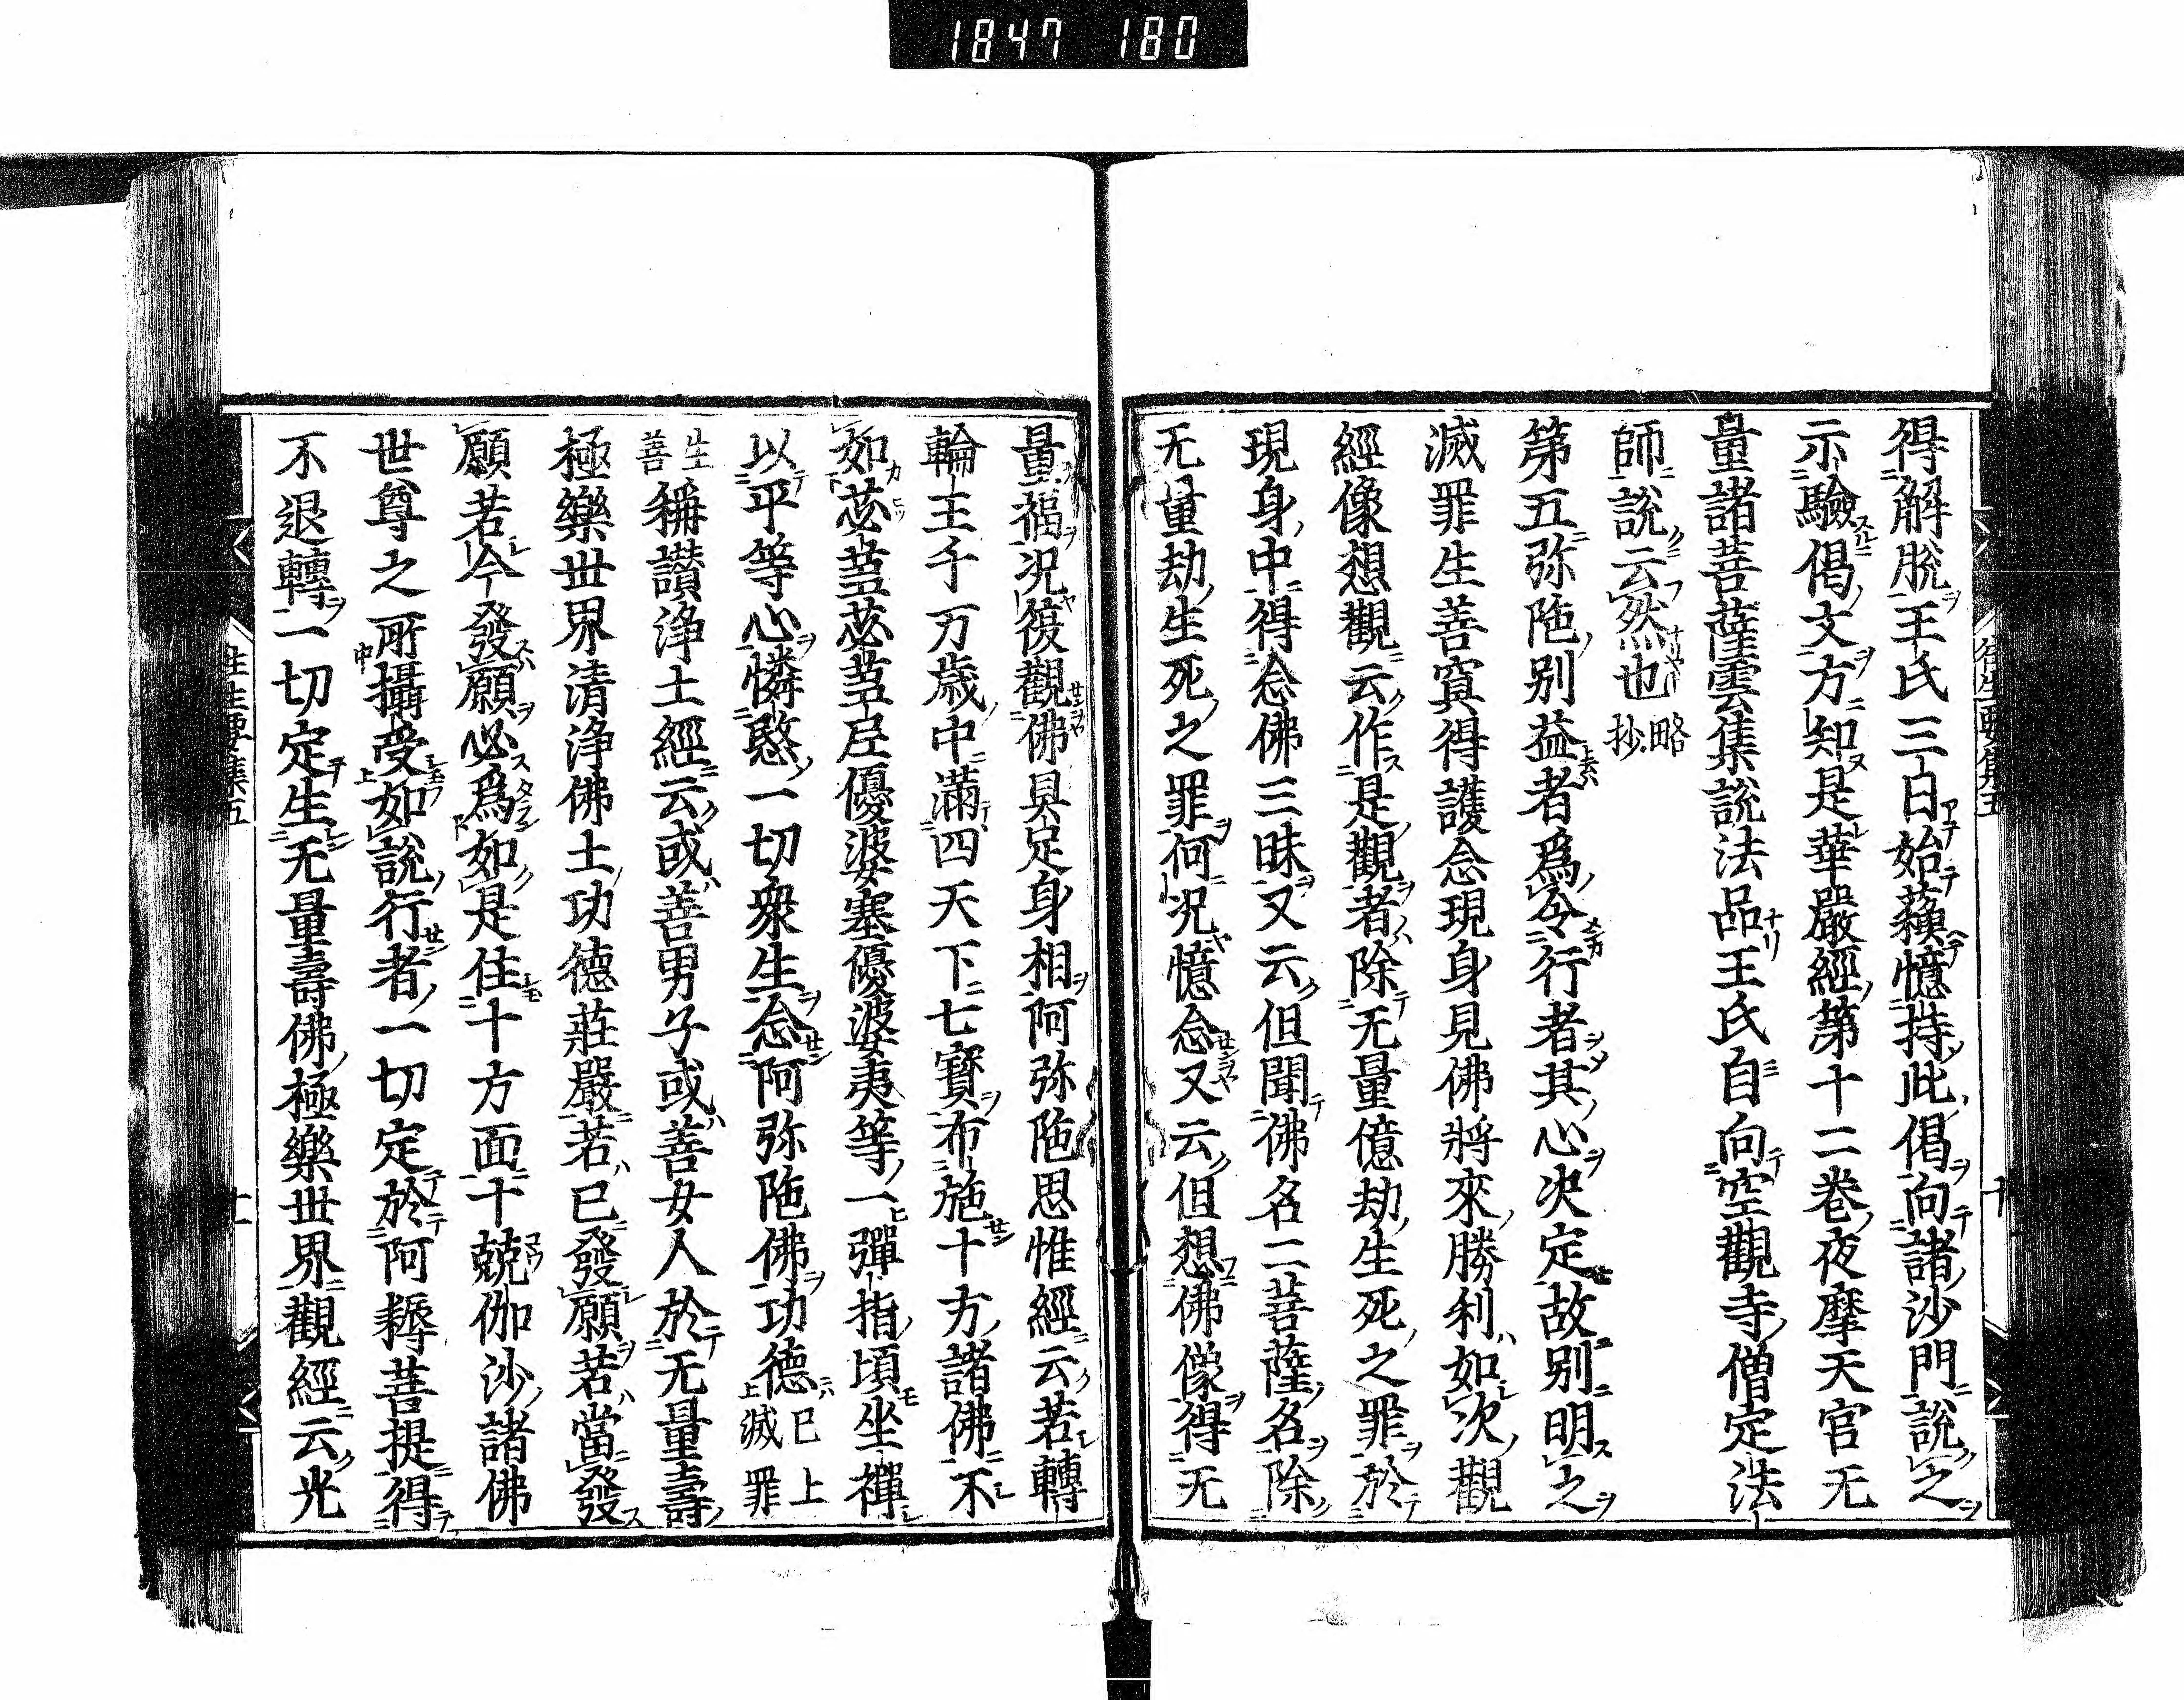 1847 180
得解脱王氏三日始蘓憶持此偈向諸沙門説之
示驗偈文方知是華嚴經第十二巻夜摩天宮无
量諸菩薩雲集説法品王氏自向空觀寺僧定法
師説云然也略抄
第五弥陁別益者爲令行者其心决定故別明之
滅罪生善冥得護念現身見佛將來勝利如次觀
經像想觀云作是觀者除无量億劫生死之罪於
現身中得念佛三昧又云但聞佛名二菩薩名除
无量劫生死之罪何况憶念又云但想佛像得无
量福况復觀佛具足身相阿弥陁思惟經云若轉
輪王千万歳中滿四天下七寳布施十方諸佛不
如苾蒭苾蒭尼優婆塞優婆夷等一彈指頃坐禪
以平等心憐愍一切衆生念阿弥陁佛功德已上滅罪
生善稱讃浄土經云或善男子或善女人於无量壽
極樂世界清浄佛土功德莊嚴若已發願若當發
願若今發願必爲如是住十方面十兢伽沙諸佛
世尊之所攝受如説行者一切定於阿耨菩提得
不退轉一切定生无量壽佛極樂世界觀經云光
往生要集五